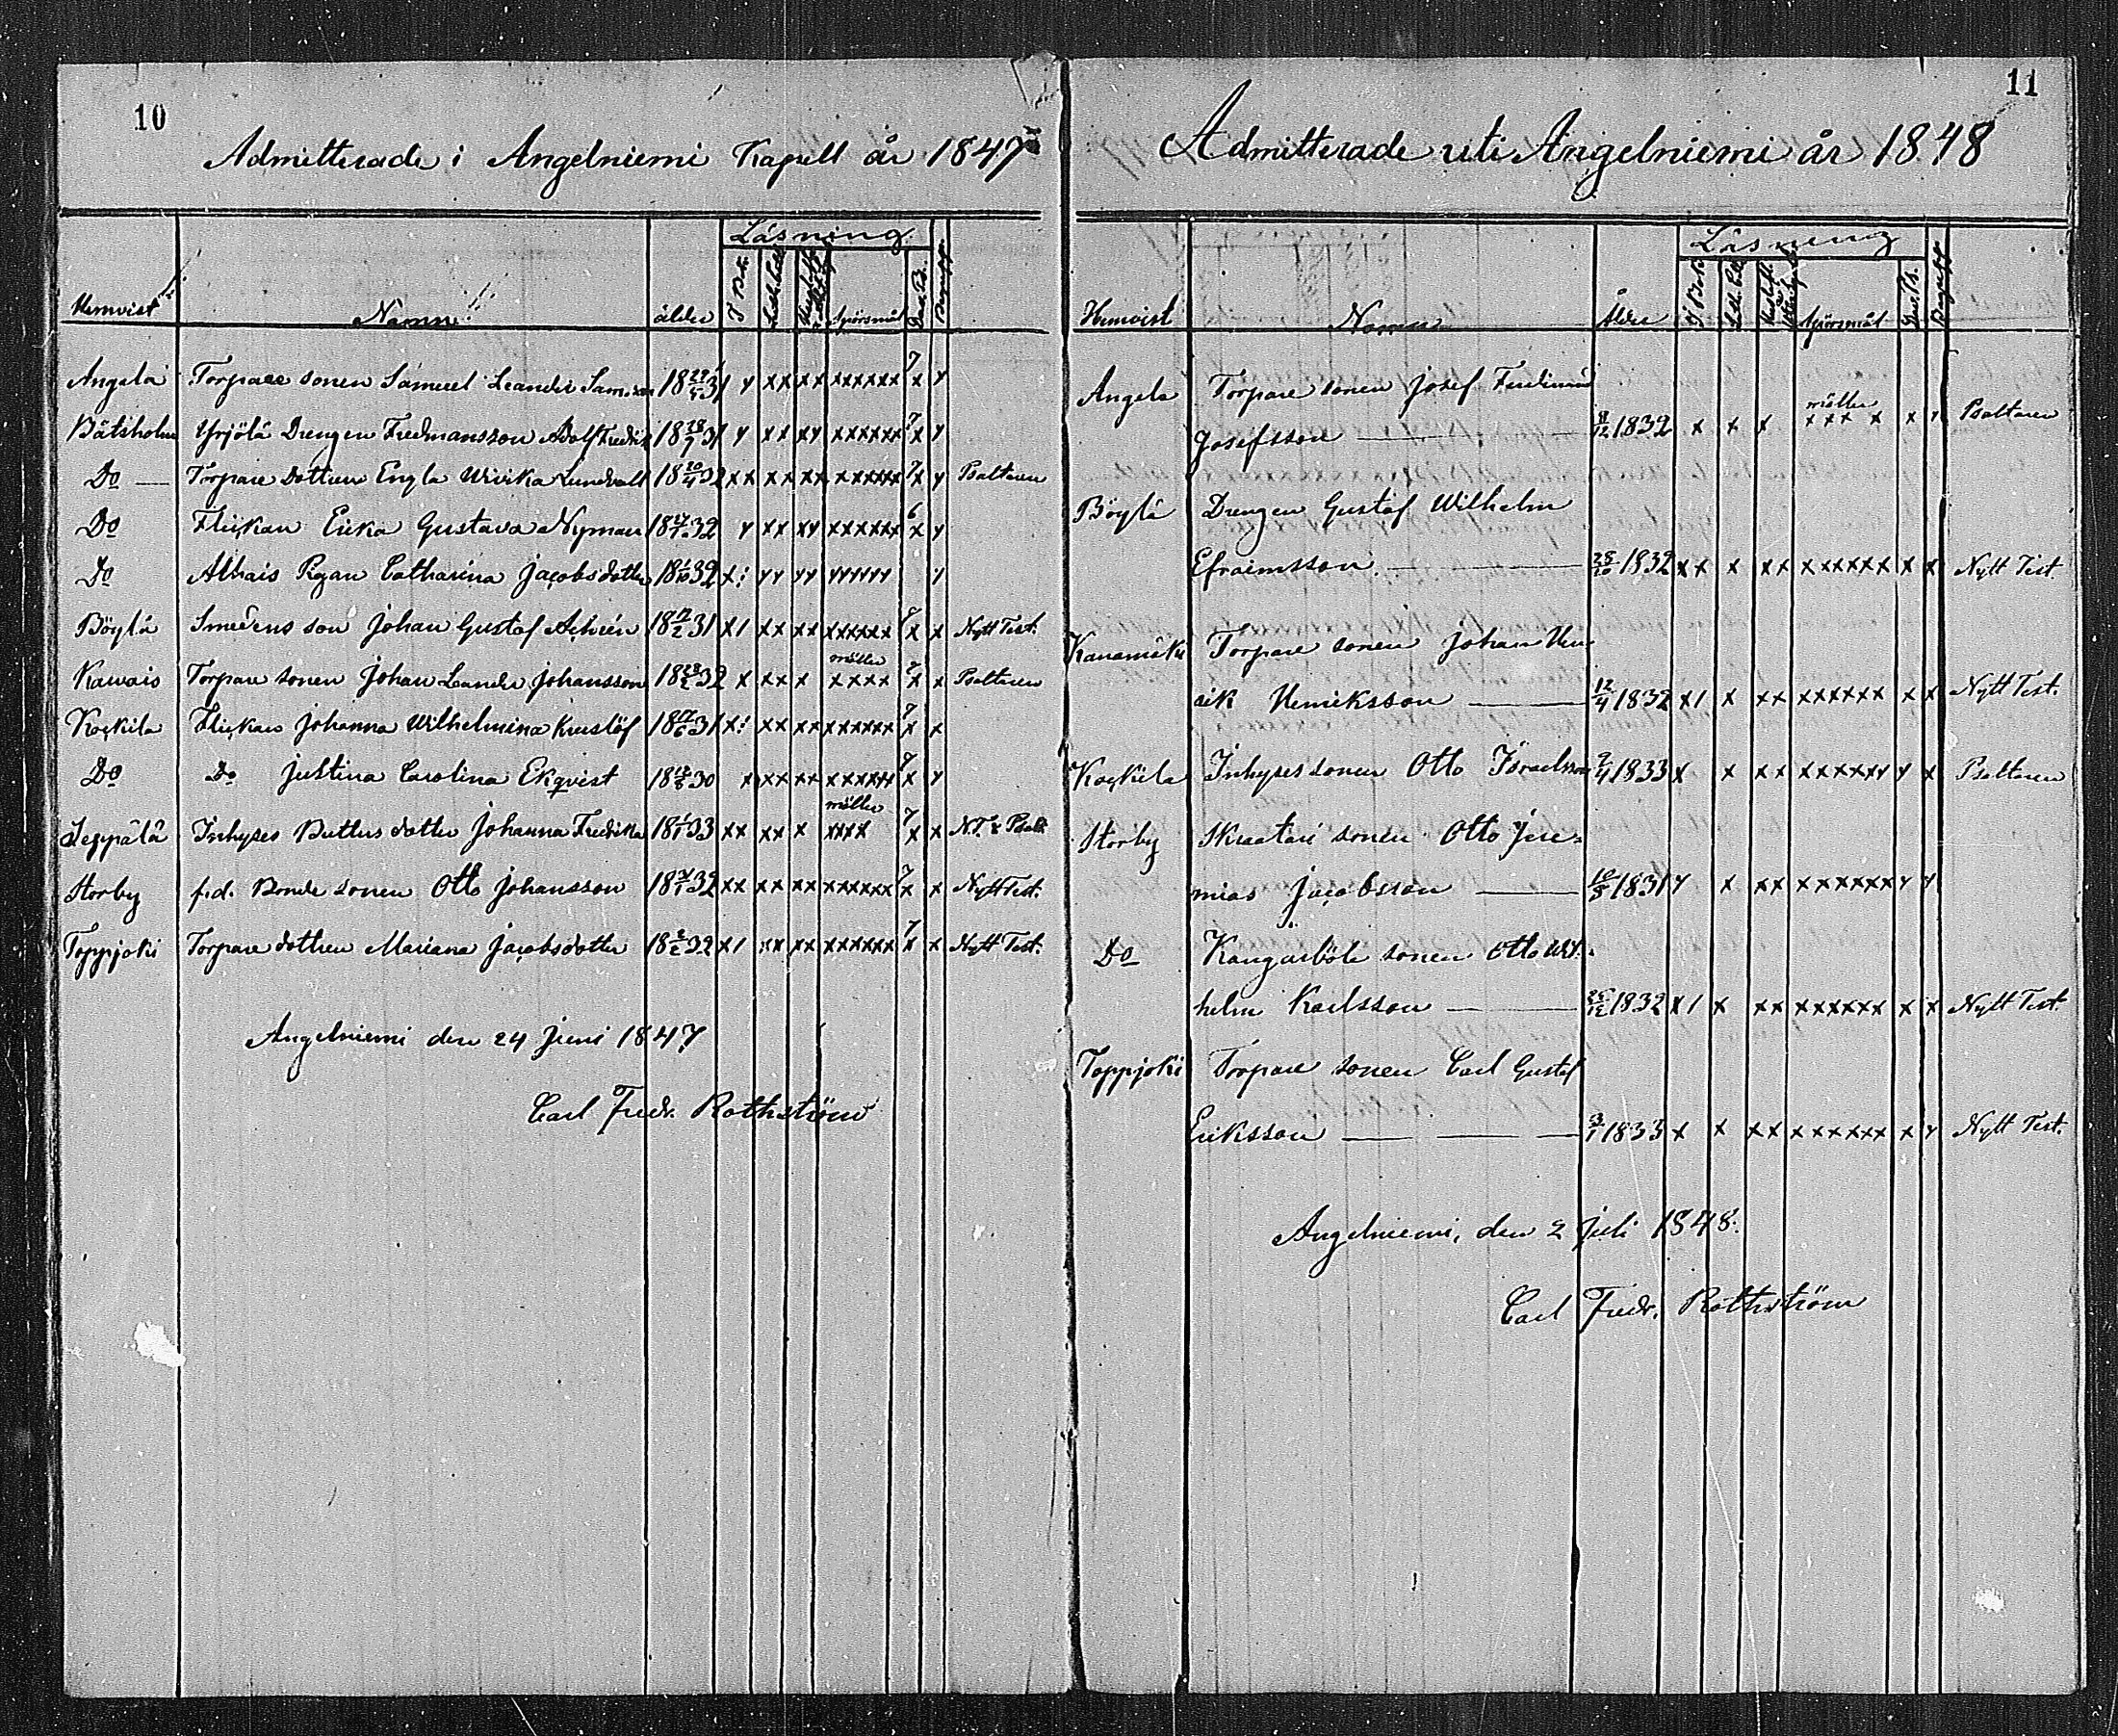 10
Admitterade i Angelniemi Kapell år 1847
Läsning.
Hemvist Namn ålder I Bok Spörsmål Begrepp
Angela Torpare sonen Samuel Leander 18 31 y xx xx xxxxxx 7 x y
Båtsholm Yrjölä Drengen Fredmansson Adolf Fredrik 18 31 y xx xy xxxxxx 7 x y
Do — Torpare dottren Engla Wivika Lundvall 18 20/4 32 xx xx xx xxxxxx 7 x y Psaltaren
Do Flickan Erika Gustava Nyman 18 32 y xx xy xxxxxx 6 x y
Do Alhais Pigan Catharina Jacobsdotter 18 32 x: yy yy yyyyyy y
Böylä Smedens son Johan Gustaf 18 31 x1 xx xx xxxxxx x x Nytt Test.
Kawais Torpare sonen Johan Leander Johansson 18 32 x xx x möller xxxx 7 x x Psaltaren
Kockila Flickan Johanna Wilhelmina 18 31 x: xx xx xxxxxx 7 x x
Do Do Justina Carolina Ekqvist 18 30 x xx xx xxxxyy x y
Seppälä Inhyses dotter Johanna Fredrika 18 33 xx xx x möller xxxx 7 x x N.T. & Psalt.
Storby f.d. Bonde sonen Otto Johansson 18 32 xx xx xx xxxxxx 7 x x Nytt Test.
Toppjoki Torpare dottren Mariana Jacobsdotter 18 32 x1 xx xx xxxxxx 7 x x Nytt Test.
Angelniemi den 24 Juni 1847
Carl Fredr. Rothström
11
Admitterade uti Angelniemi år 1848
Läsning
Hemvist Namn Ålder I Bok Spörsmål Begrepp
Angela Torpare sonen Josef Ferdinand
Josefsson — 1832 x x x möller xxx x x Psaltaren
Böylä Drengen Gustaf Wilhelm
Efraimsson — 1832 xx x xx xxxxxx x x Nytt Test.
Torpare sonen Johan Hen
rik Henriksson — 12/4 1832 x1 x xx xxxxxx x x Nytt Test.
Kockila Inhyses sonen Otto Israelsson 1833 x x xx xxxxxy y x Psaltaren
Storby Skraetari sonen Otto Jere=
mias Jacobsson — 1831 y x xx xxxxxx y y
Do Kangarböle sonen Otto Wil.
helm Karlsson — 1832 x1 x xx xxxxxx x x Nytt Test.
Toppjoki Torpare sonen Carl Gustaf
Eriksson — — — 3/1 1833 x x xx xxxxxx x y Nytt Test.
Angelniemi, den 2 Juli 1848.
Carl Fredr. Rothström